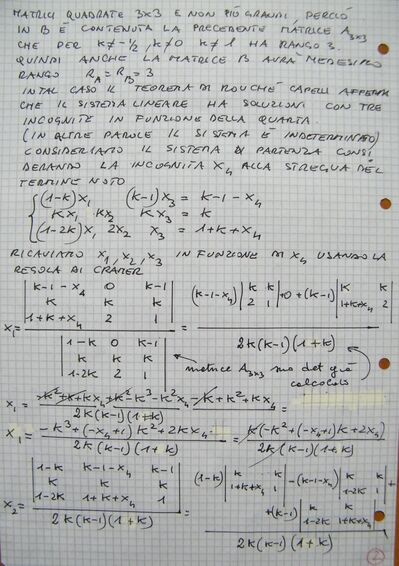 MATRICI QUADRATE 3x3 E NON PIÙ GRANDI, PERCIÒ
IN B È CONTENUTA LA PRECEDENTE MATRICE A3x3
CHE PER K≠-1/2, K≠0 K≠1 HA RANGO 3.
QUINDI ANCHE LA MATRICE B AVRÀ MEDESIMO
RANGO RA = RB = 3
IN TAL CASO IL TEOREMA DI ROUCHÉ CAPELLI AFFERMA
CHE IL SISTEMA LINEARE HA SOLUZIONI CON TRE
INCOGNITE IN FUNZIONE DELLA QUARTA.
(IN ALTRE PAROLE IL SISTEMA È INDETERMINATO)
CONSIDERIAMO IL SISTEMA DI PARTENZA CONSI
DERANDO LA INCOGNITA X4 ALLA STREGUA DEL
TERMINE NOTO
(1-K)X1 (K-1)X3 = K-1-X4
KX1 KX2 KX3 = K
(1-2K)X1 2X2 X3 = 1+K+X4
RICAVIAMO X1, X2, X3 IN FUNZIONE DI X4 USANDO LA
REGOLA DI CRAMER
X1 = |K-1-X4 0 K-1| |K K K| |1+K+X4 2 1| / |1-K 0 K-1| |K K K| |1-2K 2 1| = (K-1-X4)|K K| |2 1| +0+(K-1)|K K| |1+K+X4 2| / 2K(K-1)(1+K)
matrice A3x3 suo det già
calcolato
X1 = -K²+K+KX4+K²-K³-K²X4-K+K²+KX4 / 2K(K-1)(1+K) =
X1 = -K³+(-X4+1)K²+2KX4 / 2K(K-1)(1+K) = K(-K²+(-X4+1)K+2X4) / 2K(K-1)(1+K)
X2 = |1-K K-1-X4 K-1| |K K K| |1-2K 1+K+X4 1| / 2K(K-1)(1+K) = (1-K)|K K| |1+K+X4 1| -(K-1-X4)|K K| |1-2K 1| + +(K-1)|K K| |1-2K 1+K+X4| / 2K(K-1)(1+K)
2